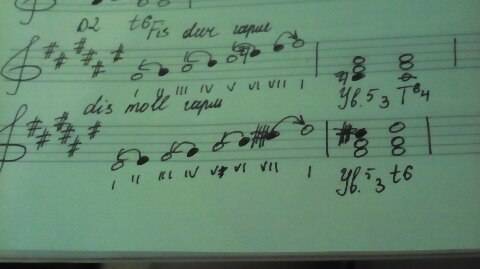 D2 t6
Fis dur гармг
I II III IV V VI VII I
Ув.5 3 T6 4
dis moll гарм
I II III IV V VI VII I
Ув.5 3 t6